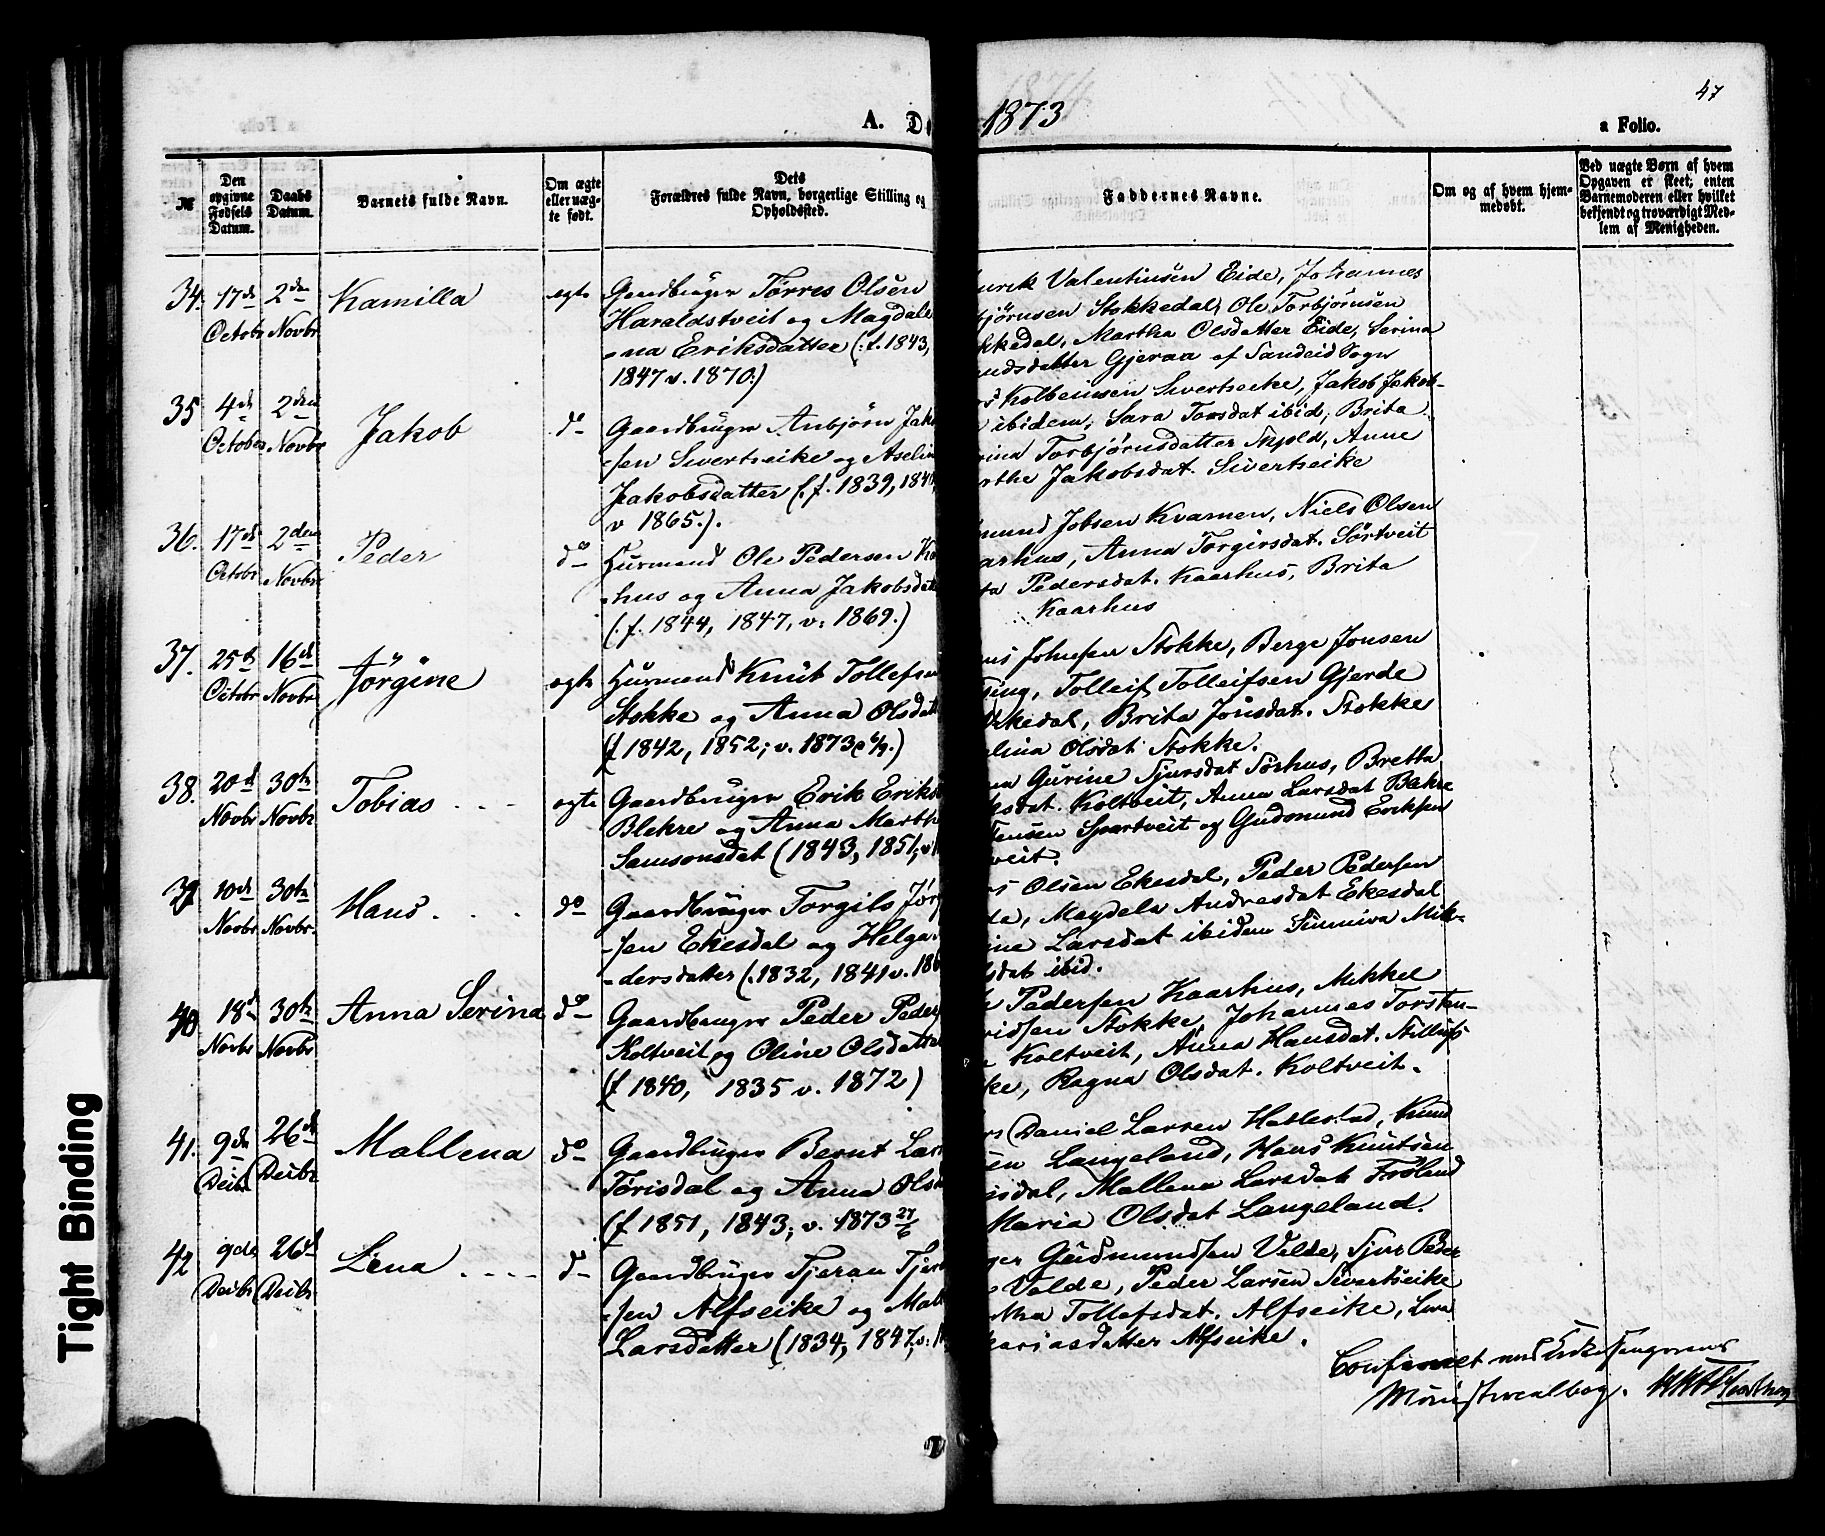 47
A. D
1873
a Folio.
№
Den opgivne Fødsels Datum.
Daabs Datum.
Barnets fulde Navn.
Om ægte eller uægte født.
Dets Forældres fulde Navn, borgerlige Stilling og Opholdssted.
Faddernes Navne.
Om og af hvem hjemmedøbt.
Ved uægte Børn af hvem Opgaven er skeet; enten Barnemoderen eller hvilket bekjendt og troværdigt Medlem af Menigheden.
34. 17de Octobr 2den Novbr Kamilla ægte
Gaardbruger Törres Olsen
Haraldstveit og Magdale
-na Eriksdatter (:f. 1843,
1847 v. 1870:)
Valentinsen Eide, Johannes
bjørnsen Stokkedal, Ole Torbjörnsen
kkedal, Martha Olsdatter Eide, Serina
Gjeraa af Sandeid Sogn
35 4de October 2den Novbr Jakob do
Gaardbruger Anbjörn Jak
-sen Sivertseike og Aselin
Jakobsdatter (:f. 1839, 184
v 1865.).
Kolbeinsen Sivertseike, Jakob Jakob-
ibidem, Sara Torsdat ibid, Brita
rina Torbjørnsdatter Skjold, Anne
rthe Jakobsdat. Sivertseike
36. 17de Octobr 2den Novbr Peder do
Huusmand Ole Pedersen Ka
-hus og Anna Jakobsdat
(:f. 1844, 1847, v: 1869.)
mund Jobsen Kvamen, Niels Olsen
arhus, Anna Torgirsdat. Sörtveit
ta Pedersdat. Kaarhus, Brita
Kaarhus
37. 25de Octobr 16de Novbr Jörgine ægte
Huusmand Knut Tollefsen
Stokke og Anna Olsdat
(f 1842, 1852; v. 1873
Johnsen Stokke, Berge Jonsen
Tolleif Tolleifsen Gjerde
kkedal, Brita Jonsdat. Stokke
lina Olsdat Stokke.
38. 20de Novbr 30te Novbr Tobias ægte
Gaardbruger Erik Eriks
Blekre og Anna Marth
Samsonsdat (1843, 1851, v
na Gurine Sjursdat Sörhus, Bretta
sdat. Koltveit, Anna Larsdat Bekre
Jensen Spartveit og Gudmund Eriksen
tveit.
39 10de Novbr 30te Novbr. Hans do
Gaardbruger Torgils Jörg
-sen Ekesdal og Helga
-dersdatter (.1832, 1841 v. 186
Olsen Ekesdal, Peder Pedersen
de, Magdela Andreasdat Ekesdal
ine Larsdat ibidem Sinniva Mik-
lsdat ibid.
40 18de Novbr 30te Novbr Anna Serina do
Gaardbruger Peder Peder
Koltveit og Oline Olsdatter
(f 1840, 1835 v. 1872)
Pedersen Kaarhus, Mikkel
ridsen Stokke, Johannes Torsten-
Koltveit, Anna Hansdat.
ke, Ragna Olsdat. Koltveit.
41. 9de Decbr 26de Decbr Mallena do
Gaardbruger Bernt Lar
Törisdal og Anna Ols
(f 1851, 1843; v. 1873 27/6
Daniel Larsen Hatlestad, Knud
sen Langeland, Hans Knutsen
isdal, Mallena Larsdat Fröland
Maria Olsdat Langeland.
42 9de Decbr 26de Decbr Lena do
Gaardbruger Tjeran Tjer
-sen Alfseike og Mal
Larsdatter (1834, 1847, v:
ger Gudmundsen Velde, Sjur Peder
Velde, Peder Larsen Sivertseike
tha Tollefsdat. Alfseike, Lena
kariasdatter Alfseike.
Confereret med Kirkesangerens
Ministerialbog.
Tight Binding